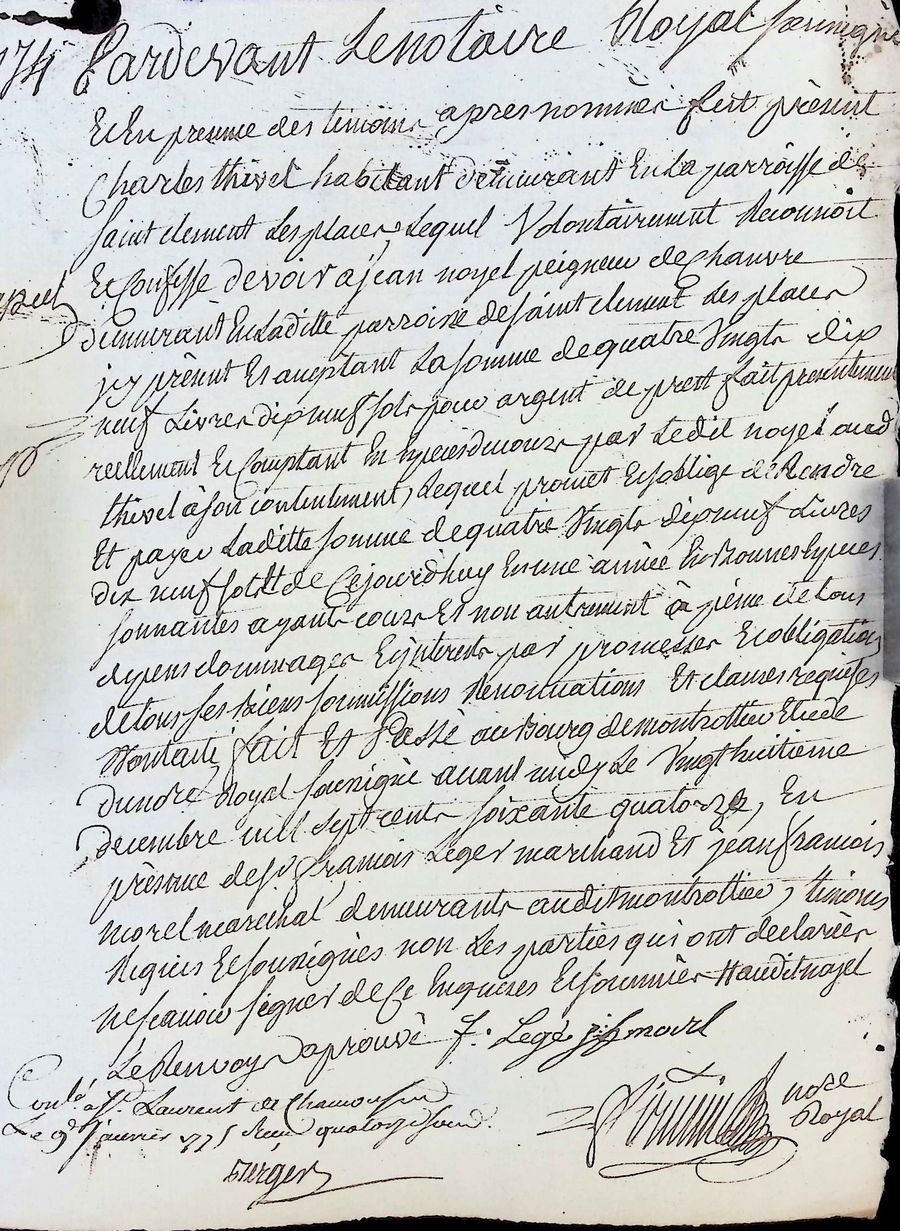 74 Pardevant Le notaire Royal sousigné
Et En presence des temoins apres nommés fut présent
Charles thivel habitant demeurant En La parroisse de
saint clement Les places, Lequel Volontairement Reconnoit
Et Confesse devoir a jean noyel peigneur de Chanvre
demeurant En Laditte parroisse de saint clement Les places
jcy présent Et acceptant La somme de quatre Vingts dix
neuf Livres dix neuf sols pour argent de prett fait presentement
reellement Et Comptant En Especes par Ledit noyel aud
thivel à son contentement, Lequel promet Et soblige de Rendre
Et payer Laditte somme de quatre Vingts dix neuf Livres
dix neuf sols de Cejourdhuy En une année En Bonnes Especes
sonnantes ayants cours Et non autrement à peine de tous
depens dommages Et jnterests par promesses Et obligations
de tous ses biens soumissions Renonciations Et clauses requises
fait Et Passé au Bourg de montrottier Etude
dunore Royal sousigné avant midy Le Vingt huitieme
decembre mill sept cents soixante quatorze, En
présence de sr. francois Leger marchand Et jean francois
morel marechal demeurants audit montrottier, témoins
Requis Et sousignés non Les parties qui ont declarées
ne scavoir signer de Ce Enquises Et sommées audit noyel
Le Renvoy aprouvé f. Legé jjf morel
Conlé. a St. Laurent de Chamousset
Le 9e janvier 1775 Reçu quatorze sous
nore
Royal
Berger